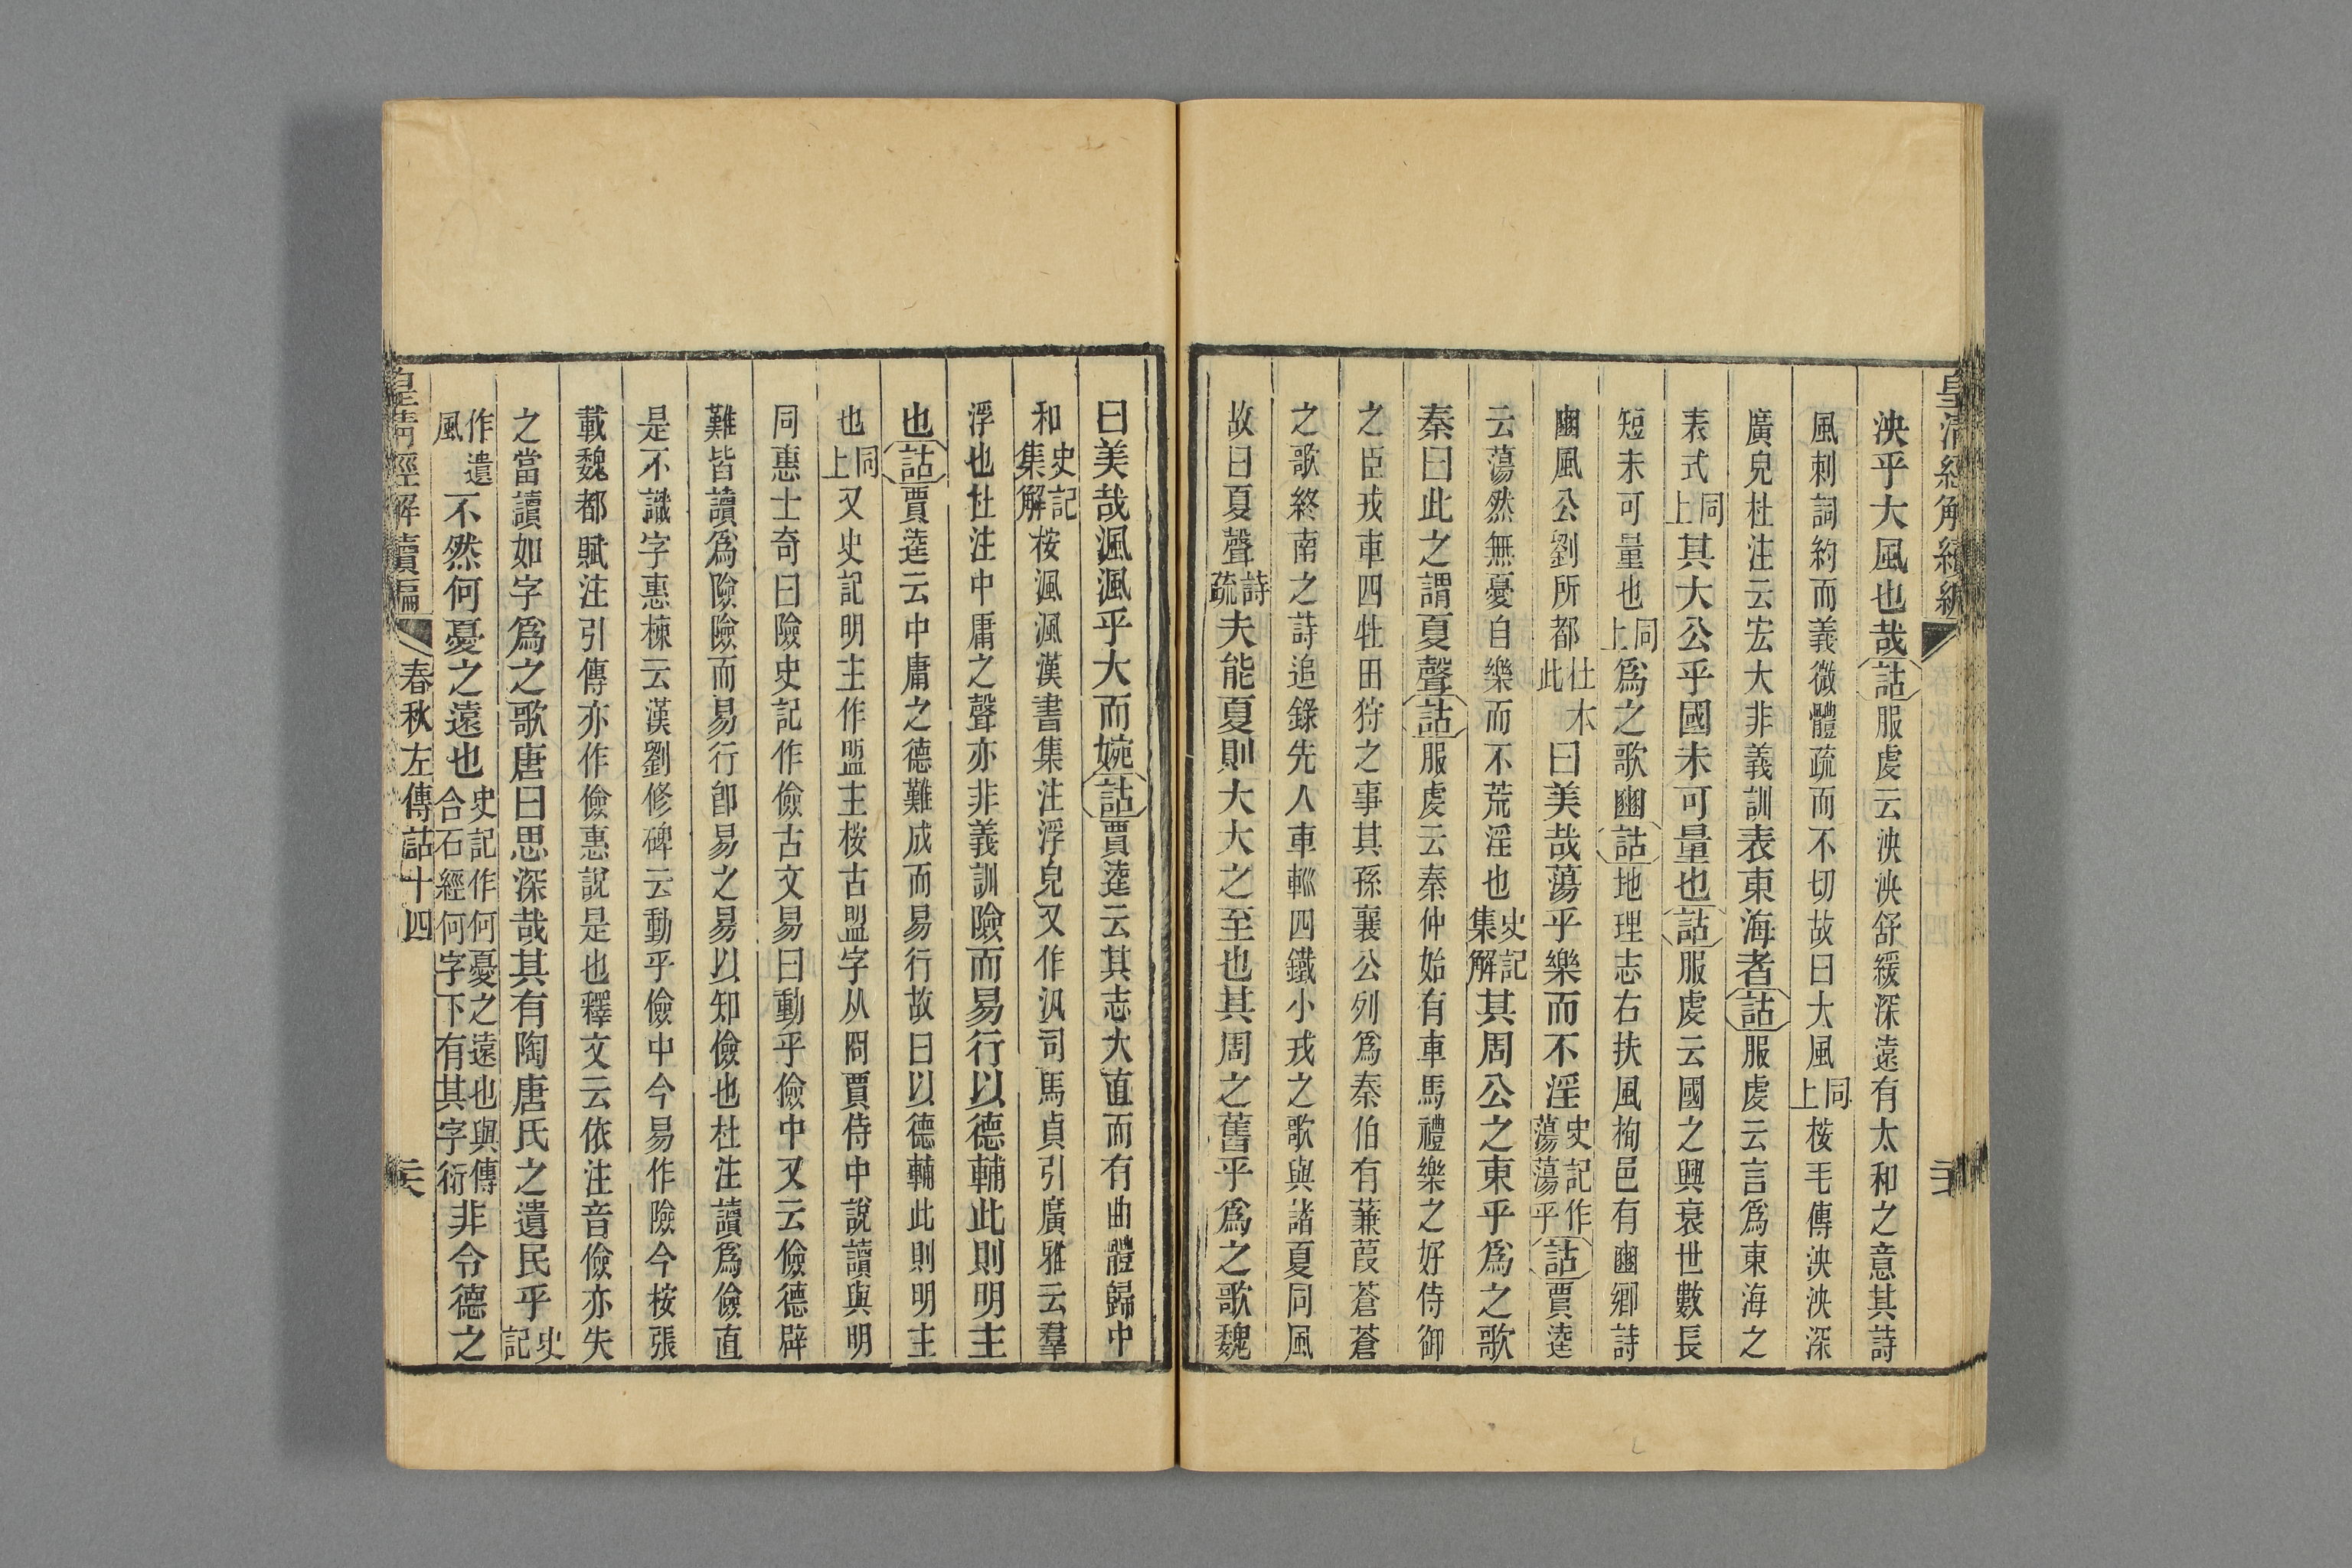 皇清經解續編
泱乎大風也哉詁服虔云泱泱舒緩深遠有太和之意其詩
風刺詞約而義微體疏而不切故曰大風同上桉毛傳泱泱深
廣皃杜注云宏大非義訓表東海者詁服虔云言為東海之
表式同上其大公乎國未可量也詁服虔云國之興衰世數長
短未可量也同上為之歌豳詁地理志右扶風栒邑有豳鄉詩
豳風公劉所都此杜本曰美哉蕩乎樂而不淫史記作蕩蕩乎詁賈逵
云蕩然無憂自樂而不荒淫也史記集解其周公之東乎為之歌
秦曰此之謂夏聲詁服虔云秦仲始有車馬禮樂之好侍御
之臣戎車四牡田狩之事其孫襄公列為秦伯有蒹葭蒼蒼
之歌終南之詩追錄先人車轔四鐵小戎之歌與諸夏同風
故曰夏聲詩疏夫能夏則大大之至也其周之舊乎為之歌魏
曰美哉渢渢乎大而婉詁賈逵云其志大直而有曲體歸中
和史記集解桉渢渢漢書集注浮皃又作汎司馬貞引廣雅云羣
浮也杜注中庸之聲亦非義訓險而易行以德輔此則明主
也詁賈逵云中庸之德難成而易行故曰以德輔此則明主
也同上又史記明主作盟主桉古盟字从冏賈侍中說讀與明
同惠士奇曰險史記作儉古文易曰動乎儉中又云儉德辟
難皆讀為險險而易行卽易之易以知儉也杜注讀為儉直
是不識字惠棟云漢劉修碑云動乎儉中今易作險今桉張
載魏都賦注引傳亦作儉惠說是也釋文云依注音儉亦失
之當讀如字為之歌唐曰思深哉其有陶唐氏之遺民乎史記
作遺風不然何憂之遠也史記作何憂之遠也與傳合石經何字下有其字衍非令德之
皇清經解續編 春秋左傳詁十四